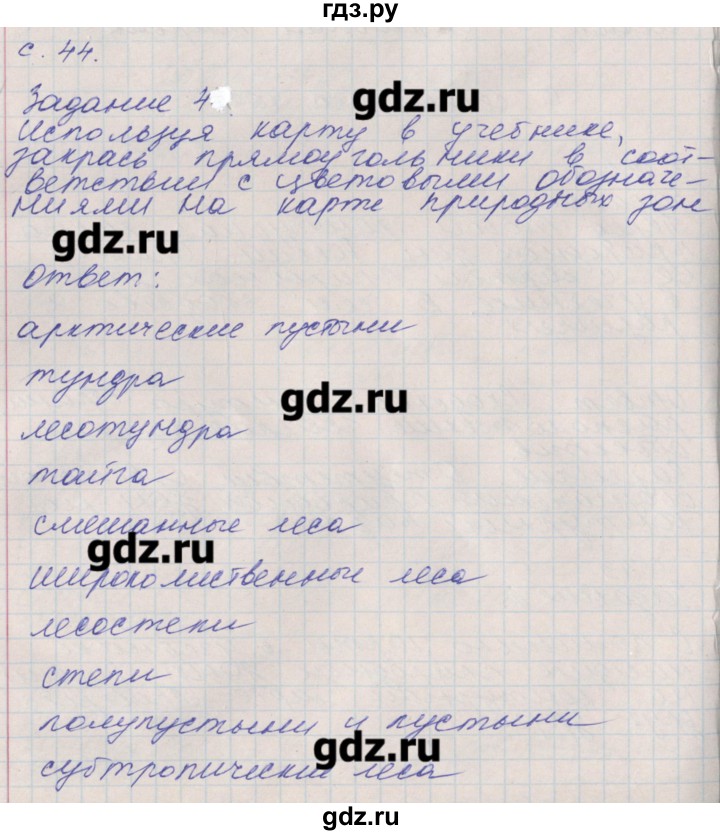 гдз.ру
с. 44.
Задание 4
gdz.ru
Используя карту в учебнике,
закрась прямоугольники в соот-
ветствии с цветовыми обозначе-
ниями на карте природных зон
gdz.ru
Ответ:
арктические пустыни
тундра
gdz.ru
лесотундра
тайга
смешанные леса
gdz.ru
широколиственные леса
лесостепи
степи
полупустыни и пустыни
gdz.ru
субтропические леса
gdz.ru